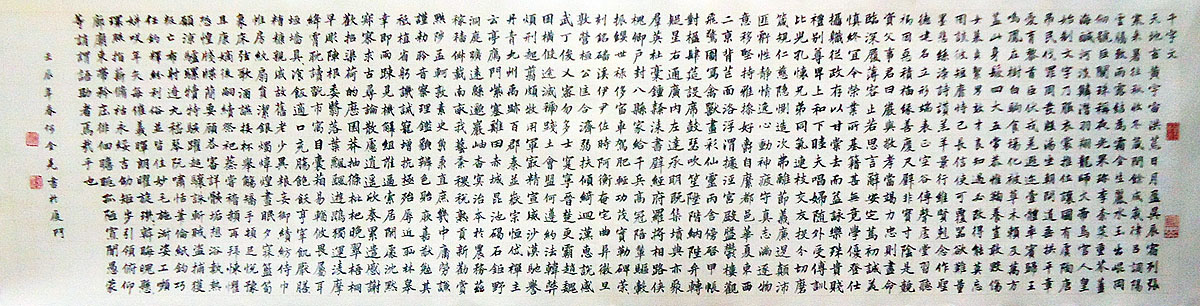 千字文
天地玄黃宇宙洪荒日月盈昃辰宿列張
寒來暑往秋收冬藏閏餘成歲律呂調陽
雲騰致雨露結為霜金生麗水玉出崑岡
劍號巨闕珠稱夜光果珍李柰菜重芥薑
海鹹河淡鱗潛羽翔龍師火帝鳥官人皇
始制文字乃服衣裳推位讓國有虞陶唐
弔民伐罪周發殷湯坐朝問道垂拱平章
愛育黎首臣伏戎羌遐邇一體率賓歸王
鳴鳳在樹白駒食場化被草木賴及萬方
蓋此身髮四大五常恭惟鞠養豈敢毀傷
女慕貞潔男效才良知過必改得能莫忘
罔談彼短靡恃己長信使可覆器欲難量
墨悲絲染詩讚羔羊景行維賢克念作聖
德建名立形端表正空谷傳聲虛堂習聽
禍因惡積福緣善慶尺璧非寶寸陰是競
資父事君曰嚴與敬孝當竭力忠則盡命
臨深履薄容止若思言辭安定篤初誠美
慎終宜令榮業所基籍甚無竟學優登仕
攝職從政存以甘棠去而益詠樂殊貴賤
禮別尊卑上和下睦夫唱婦隨外受傅訓
比兒孔懷兄弟同氣連枝交友投分切磨
箴規仁慈隱惻造次弗離節義廉退顛沛
匪虧性靜情逸心動神疲守真志滿逐物
意移堅持雅操好爵自縻都邑華夏東西
二京背邙面洛浮渭據涇宮殿盤鬱樓觀
飛驚圖寫禽獸畫彩仙靈丙舍傍啟甲帳
對楹肆筵設席鼓瑟吹笙陞階納陛弁轉
疑星右通廣內左達承明既集墳典亦聚
群英杜稾鍾隸漆書壁經府羅將相路俠
槐卿戶封八縣家給千兵高冠陪輦驅轂
振纓世祿侈富車駕肥輕策功茂實勒碑
刻銘磻溪伊尹佐時阿衡奄宅曲阜微旦
孰營桓公匡合濟弱扶傾綺迴漢惠說感
武丁俊乂密勿多士寔寧晉楚更霸趙魏
困橫假途滅虢踐土會盟何遵約法韓弊
煩刑起翦頗牧用軍最精宣威沙漠馳譽
丹青九州禹跡百郡秦并嶽宗恆岱禪主
云亭雁門紫塞雞田赤城昆池碣石鉅野
洞庭曠遠綿邈巖岫杳冥治本於農務茲
稼穡俶載南畝我藝黍稷稅熟貢新勸賞
黜陟孟軻敦素史魚秉直庶幾中庸勞謙
謹敕聆音察理鑑貌辨色貽厥嘉猷勉其
祗植省躬譏誡寵增抗極殆辱近恥林皋
幸即兩疏見機解組誰逼索居閒處沉默
寂寥求古尋論散慮逍遙欣奏累遣慼謝
歡招渠荷的歷園莽抽條枇杷晚翠梧桐
早凋陳根委翳落葉飄颻遊鵾獨運凌摩
絳霄耽讀翫市寓目囊箱易輶攸畏屬耳
垣牆具膳餐飯適口充腸飽飫烹宰飢厭
糟糠親戚故舊老少異糧妾御績紡侍巾
帷房紈扇圓潔銀燭煒煌晝眠夕寐藍筍
象床弦歌酒讌接杯舉觴矯手頓足悅豫
且康嫡後嗣續祭祀蒸嘗稽顙再拜悚懼
恐惶牋牒簡要顧答審詳骸垢想浴執熱
願涼驢騾犢特駭躍超驤誅斬賊盜捕獲
叛亡布射遼丸嵇琴阮嘯恬筆倫紙鈞巧
任釣釋紛利俗並皆佳妙毛施淑姿工顰
妍笑年矢每催曦暉朗曜璇璣懸斡晦魄
環照指薪修祜永綏吉劭矩步引領俯仰
廊廟束帶矜莊徘徊瞻眺孤陋寡聞愚蒙
等誚謂語助者焉哉乎也
壬辰年春何金亮書於廈門